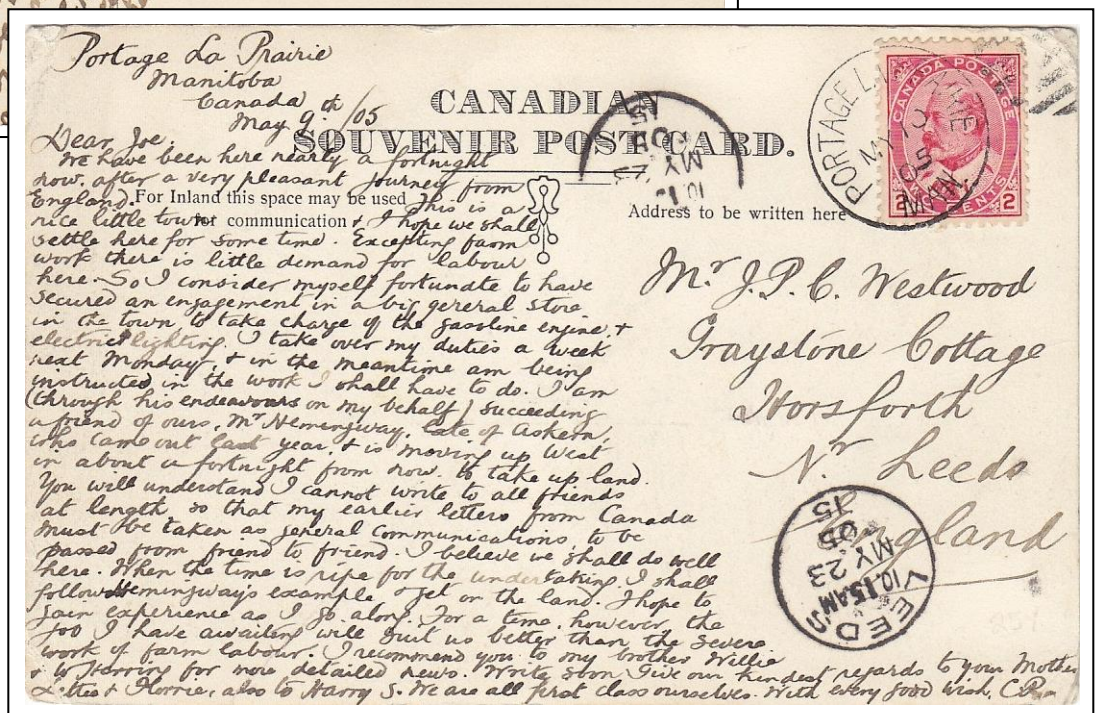 Portage La Prairie
Manitoba
Canada
May 9th/05
CANADIAN
SOUVENIR POST CARD.
For Inland this space may be used
for communication
Address to be written here
Dear Joe,
We have been here nearly a fortnight
now, after a very pleasant journey from
England. This is a
nice little town & I hope we shall
settle here for some time. Excepting farm
work there is little demand for labour
here. So I consider myself fortunate to have
secured an engagement in a big general store
in the town, to take charge of the gasoline engine, &
electric lighting. I take over my duties a week
next Monday, & in the meantime am being
instructed in the work I shall have to do. I am
(through his endeavours on my behalf) succeeding
a friend of ours, Mr Hemingway, late of Askern,
who came out last year, & is moving up West
in about a fortnight from now, to take up land.
You will understand I cannot write to all friends
at length, so that my earlier letters from Canada
must be taken as general communications, to be
passed from friend to friend. I believe we shall do well
here. When the time is ripe for the undertaking I shall
follow Hemingways example & get on the land. I hope to
gain experience as I go along. For a time, however, the
job I have awaiting will suit us better than the severe
work of farm labour. I recommend you to my brother Willie
& W Herring for more detailed news. Write soon Give our kindest regards to your Mother
Lettie & Florrie, also to Harry S. We are all first class ourselves. With every good wish,
Mr J.P.C. Westwood
Graystone Cottage
Horsforth
Nr Leeds
England
CANADA POSTAGE
2 CENTS 2
PORTAGE LA PRAIRIE
MY 10
05
MAN
MY
05
15
LEEDS
10.15AM
MY 23
05
15